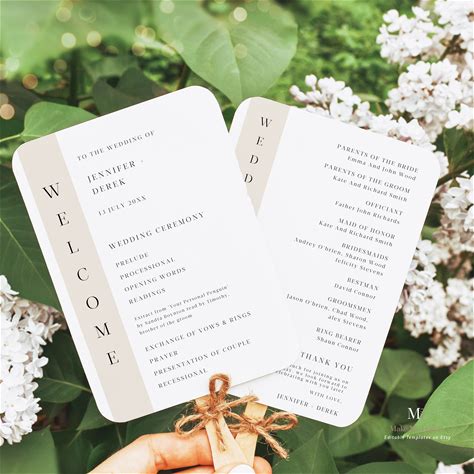 WELCOME
TO THE WEDDING OF
JENNIFER +
DEREK
13 JULY 20XX
WEDDING CEREMONY
PRELUDE
PROCESSIONAL
OPENING WORDS
READINGS
Extract from 'Your Personal Penguin'
by Sandra Boynton read by Timothy,
brother of the groom
EXCHANGE OF VOWS & RINGS
PRAYER
PRESENTATION OF COUPLE
RECESSIONAL
WEDD
PARENTS OF THE BRIDE
Emma And John Wood
PARENTS OF THE GROOM
Kate And Richard Smith
OFFICIANT
Father John Richards
MAID OF HONOR
Kate And Richard Smith
BRIDESMAIDS
Audrey O'brien, Sharon Wood
Felicity Stevens
BESTMAN
David Connor
GROOMSMEN
Jason O'brien, Chad Wood,
alex Stevens
RING BEARER
Shaun Connor
THANK YOU
for joining us on
we look forward to
celebrating with you
WITH LOVE
JENNIFER + DEREK
Editable Templates on Etsy